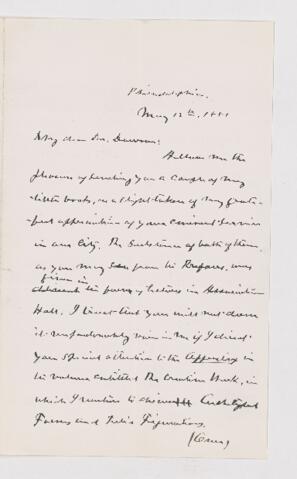 Philadelphia,
May 12th, 1881
My dear Dr. Dawson:
Allow me the
pleasure of sending you a couple of my
little books, as a slight token of my grate-
ful appreciation of your eminent services
in our City. The substance of both of them,
as you may see from the Prefaces, was
given in
the form of lectures in Association
Hall. I trust that you will not deem
it unpardonably vain in me if I direct
your special attention to the Appendix, in
the volume entitled The Creative Week, in
which I venture to discuss Archetypal
Forms and
(Over)